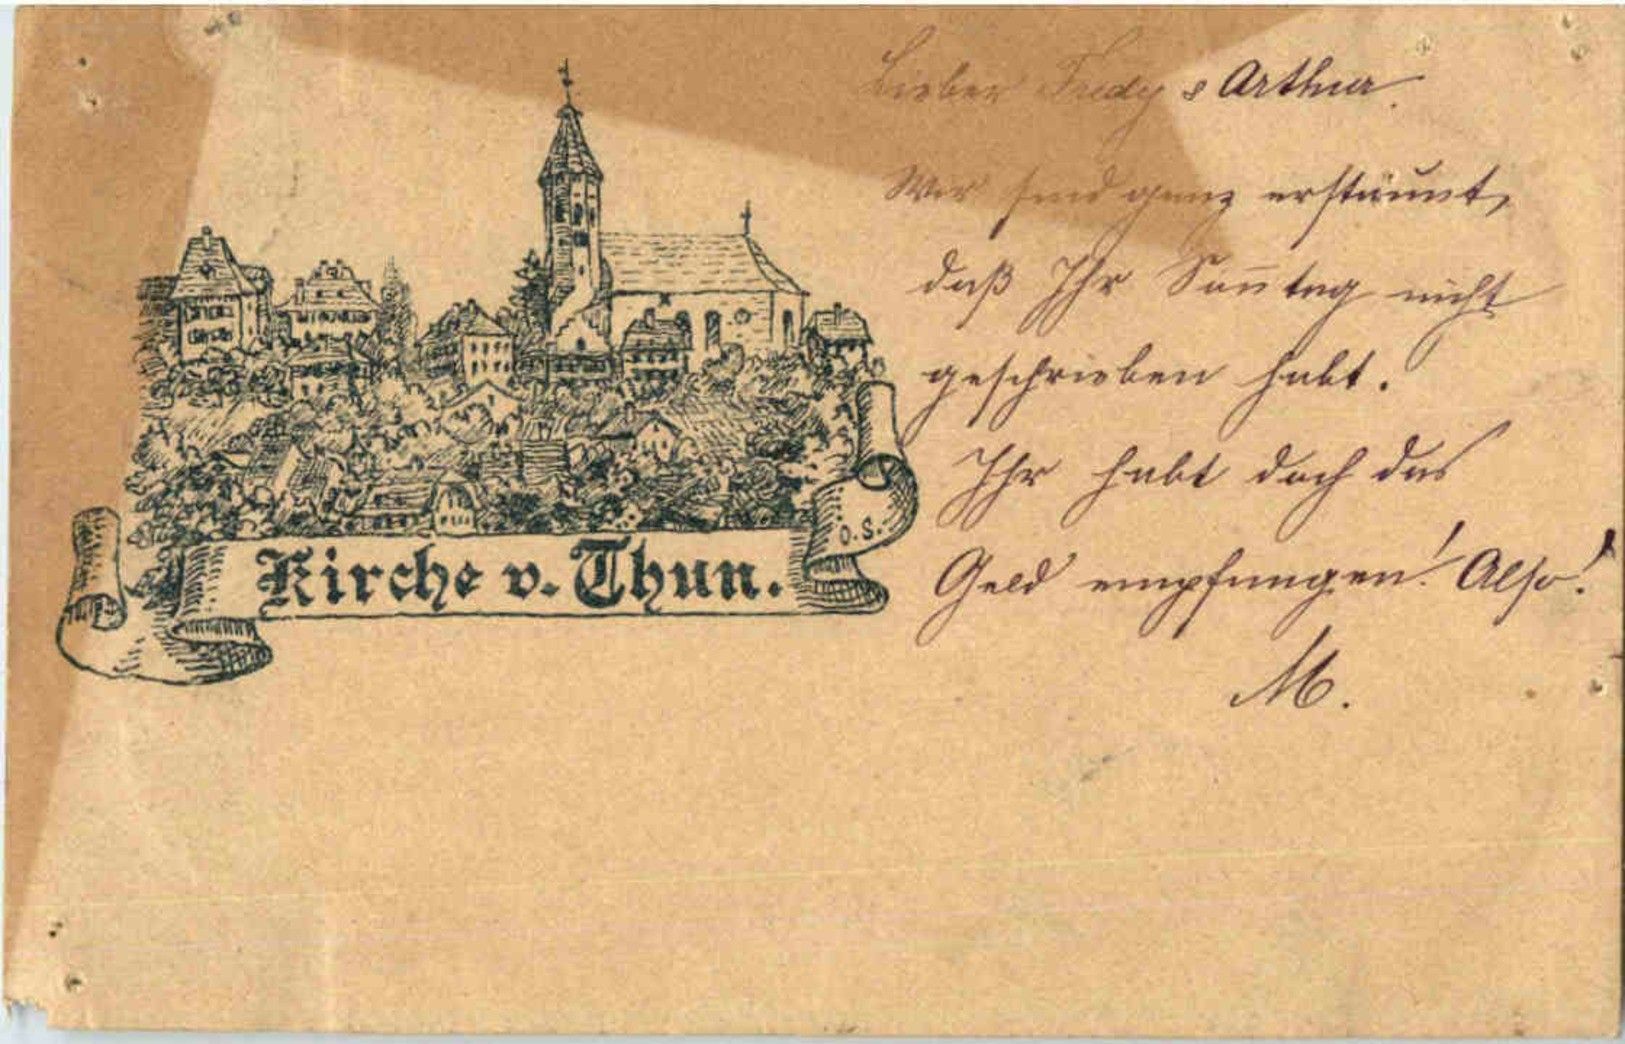 Lieber Fredy & Arthur.
Wir sind ganz erstaunt,
daß Ihr Sonntag nicht
geschrieben habt.
Ihr habt doch das
Geld empfangen! Also!
M.
O.S.
Kirche v. Thun.